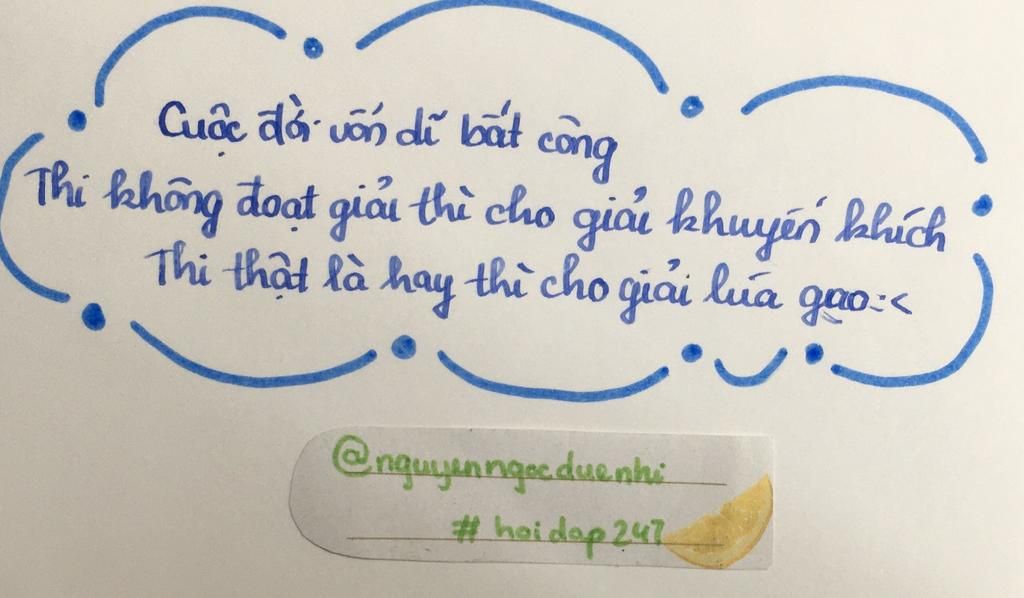 Cuộc đời vốn dĩ bất công
Thi không đoạt giải thì cho giải khuyến khích
Thi thật là hay thì cho giải lúa gạo:<
@nguyenngocduenhi
# hoidap247